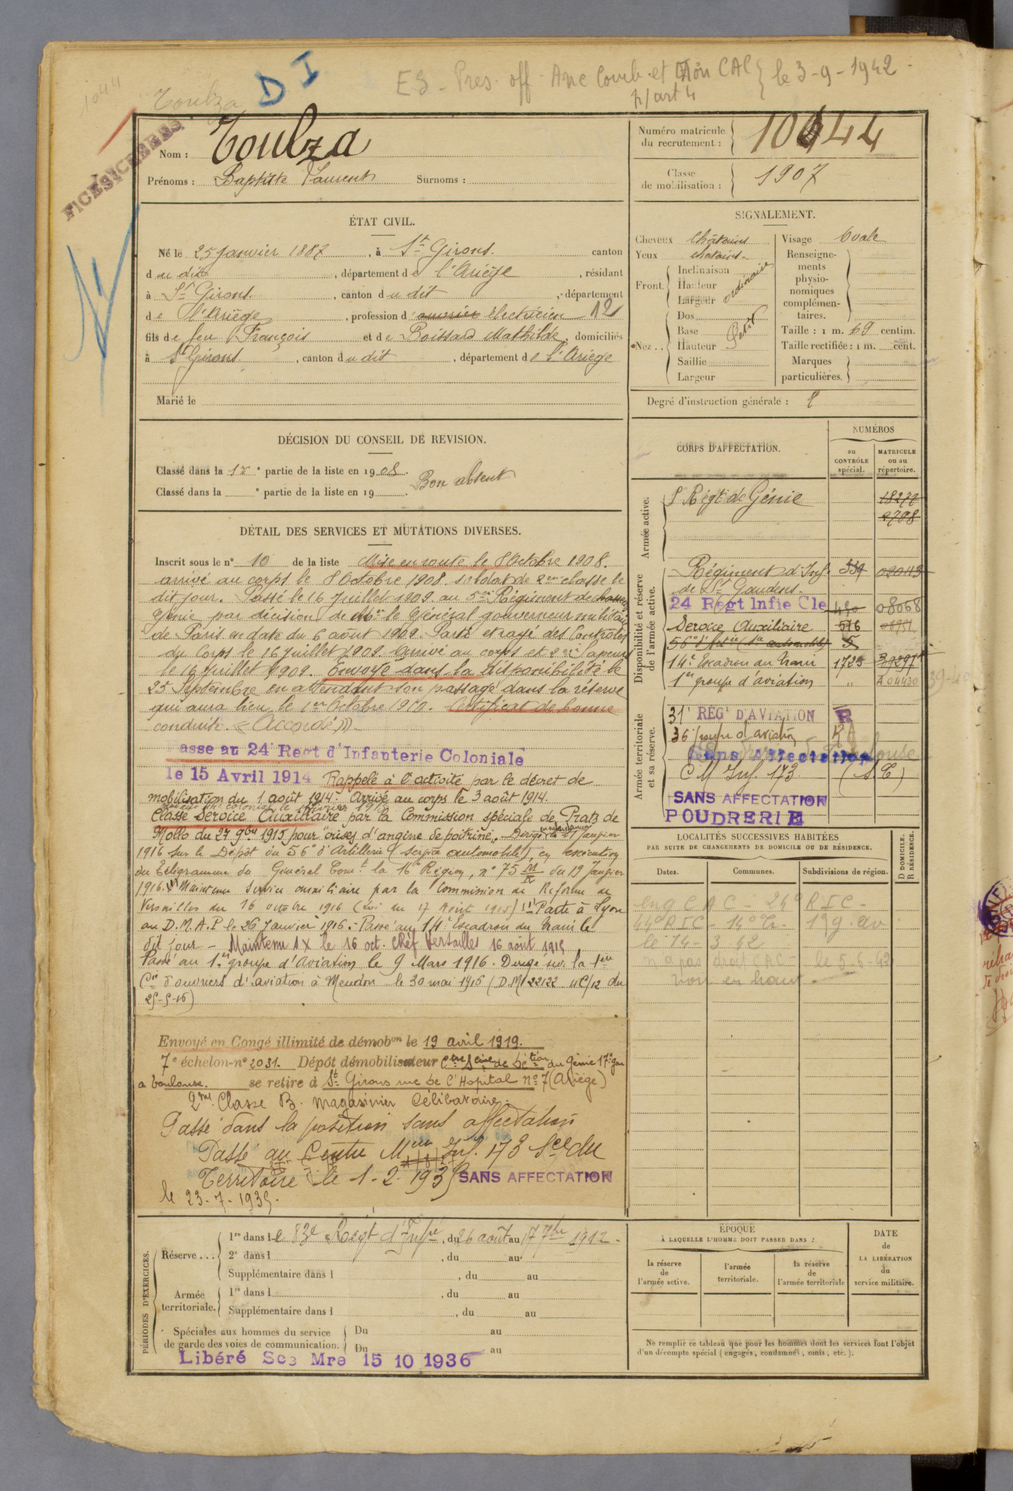 1044
Toulza
D I
ES. Pres. off. Anc Comb. et CAC } le 3-9-1942.
p/art 4
FICHES
Nom : Toulza
Prénoms : Baptiste Laurent Surnoms :
Numéro matricule du recrutement : 1044
Classe de mobilisation : 1907
ÉTAT CIVIL.
Né le 25 Janvier 1887, à St Girons. canton
du dit, département de l'Ariège, résidant
à St Girons. canton du dit, département
de l'Ariège, profession d'ouvrier électricien 121
fils de feu François et de Boissard Mathilde, domiciliés
à St Girons, canton du dit, département de l'Ariège
Marié le
SIGNALEMENT.
Cheveux châtains
Yeux chatains.
Front. Inclinaison
Hauteur
Largeur
ordinaire
Nez.. Dos
Base
Hauteur
Saillie
Largeur
Petit
Visage ovale
Renseignements physionomiques complémentaires.
Taille : 1 m. 69 centim.
Taille rectifiée : 1 m. cent.
Marques particulières.
Degré d'instruction générale :
DÉCISION DU CONSEIL DE REVISION.
Classé dans la 1re partie de la liste en 1908.
Classé dans la e partie de la liste en 19 .
Bon absent
DÉTAIL DES SERVICES ET MUTATIONS DIVERSES.
Inscrit sous le n° 10 de la liste Mise en route le 8 Octobre 1908.
arrivé au corps le 8 Octobre 1908. soldat de 2me classe le
dit jour. Passé le 16 Juillet 1909 au 5me Régiment de
Génie par décision de Mr le Général gouverneur militaire
de Paris en date du 6 août 1909. Passé et rayé des Contrôles
du Corps le 16 juillet 1909. Arrivé au corps et 2me sapeur
le 16 Juillet 1909. Envoyé dans la disponibilité le
25 Septembre en attendant son passage dans la réserve
qui aura lieu le 1er Octobre 1910. Certificat de bonne
conduite. « Accordé ».
Passe au 24e Regt d'Infanterie Coloniale
le 15 Avril 1914 Rappelé à l'activité par le décret de
mobilisation du 1 août 1914. Arrivé au corps le 3 août 1914.
Classé Service Auxiliaire par la Commission spéciale de Prats de
Mollo du 27 9bre 1915 pour "crises d'angine de poitrine". Dirigé le 21 Janvier
1916 sur le Dépôt du 56e d'Artillerie (service automobile), en exécution
du télégramme du Général Comt la 16e Région, n° 75 du 19 Janvier
1916. Maintenu Service auxiliaire par la Commission de Réforme de
Versailles du 16 octobre 1916 Passé à Lyon
au D.M.A.P. le 26 Janvier 1916. Passé au 14e Escadron du train le
dit jour - Maintenu AX le 16 oct. Chef Versailles 16 août 1918
Passé au 1er groupe d'Aviation le 9 Mars 1916. Dirigé sur la 1ere
Cie d'ouvriers d'aviation à Meudon le 30 mai 1916 (D.M. 22122 4C/12 du
25-5-16)
Envoyé en Congé illimité de démobon le 19 avril 1919.
7e échelon-n° 2031. Dépôt démobilisateur du Génie
a Toulouse. se retire à St Girons rue de l'Hopital n° 7 (Ariège)
2me Classe B. magasinier Célibataire.
Passé dans la position sans affectation
Passé au Centre Meur Inf. 173 Sce du
Territoire le 1-2-1935 SANS AFFECTATION
le 23-7-1935.
CORPS D'AFFECTATION.
NUMÉROS
au CONTRÔLE spécial.
MATRICULE ou au répertoire.
Armée active.
Régt de Génie 18270
2798
Disponibilité et réserve de l'armée active.
Régiment d'Inf. 339
de St Gaudens.
24 Regt Infie Cle 450 08068
Service Auxiliaire 516
14e Escadron du train 1728
1er groupe d'aviation "
Armée territoriale et sa réserve.
31e REGt D'AVIATION R
36e groupe d'aviation
Sans Affectation
C M Inf. 173 (S.T)
SANS AFFECTATION
POUDRERIE
LOCALITÉS SUCCESSIVES HABITÉES
PAR SUITE DE CHANGEMENTS DE DOMICILE OU DE RÉSIDENCE.
Dates. Communes. Subdivisions de région. D DOMICILE. R RÉSIDENCE.
eng CAC - 24e RIC -
44e RIC - 14e Tr - 1er g. av
le 14-3 42
n'a pas droit CAC - le 5-6-42
Voir en haut.
PÉRIODES D'EXERCICES.
Réserve... 1re dans le 83e Régt d'Infie, du 26 août au 17 7bre 1912.
2e dans l , du au
Supplémentaire dans l , du au
Armée territoriale. 1re dans l , du au
Supplémentaire dans l , du au
Spéciales aux hommes du service de garde des voies de communication. Du au
Du au
Libéré Sce Mre 15 10 1936
ÉPOQUE
À LAQUELLE L'HOMME DOIT PASSER DANS :
la réserve de l'armée active.
l'armée territoriale.
la réserve de l'armée territoriale
DATE de LA LIBÉRATION du service militaire.
Ne remplir ce tableau que pour les hommes dont les services font l'objet
d'un décompte spécial (engagés, condamnés, omis, etc.).